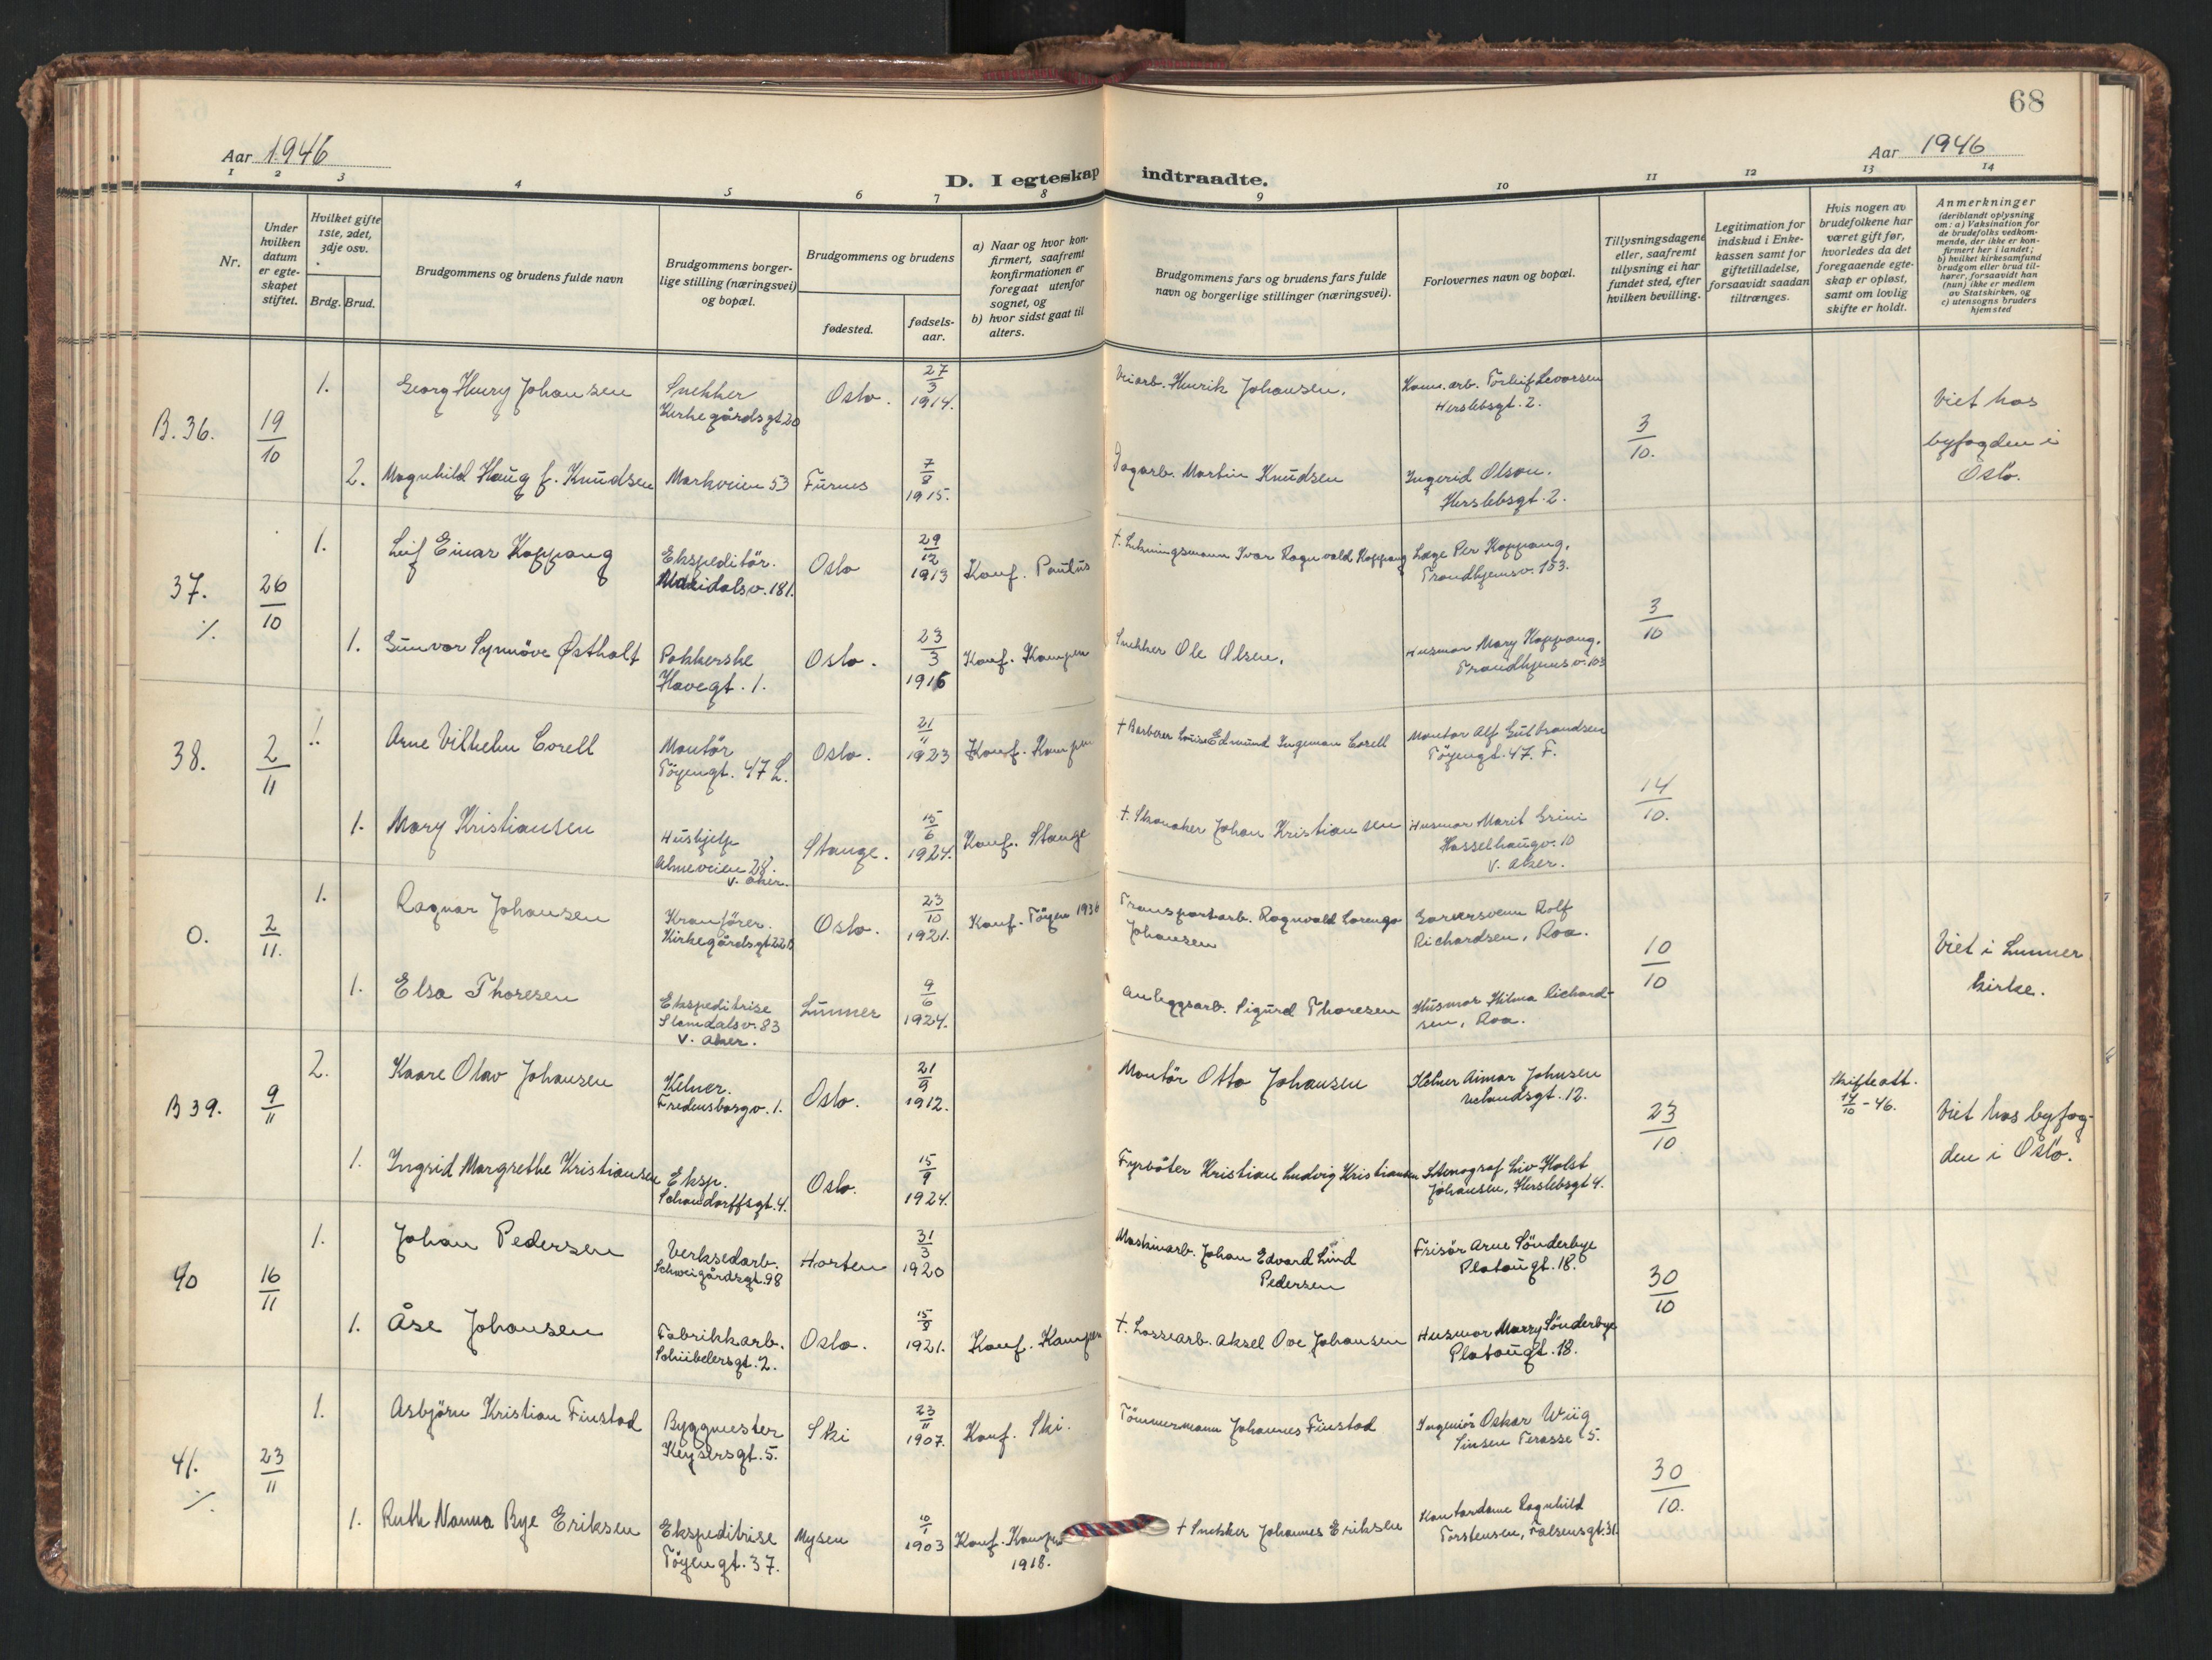 68
Aar 1946
Aar 1946
D. I egteskap indtraadte.
1 2 3 4 5 6 7 8 9 10 11 12 13 14
Nr.
Under
hvilken
datum
er egte-
skapet
stiftet.
Hvilket gifte
1ste, 2det,
3dje osv.
Brdg. Brud.
Brudgommens og brudens fulde navn
Brudgommens borger-
lige stilling (næringsvei)
og bopæl.
Brudgommens og brudens
fødested.
fødsels-
aar.
a) Naar og hvor kon-
firmert, saafremt
konfirmationen er
foregaat utenfor
sognet, og
b) hvor sidst gaat til
alters.
Brudgommens fars og brudens fars fulde
navn og borgerlige stillinger (næringsvei).
Forlovernes navn og bopæl.
Tillysningsdagene
eller, saafremt
tillysning ei har
fundet sted, efter
hvilken bevilling.
Legitimation for
indskud i Enke-
kassen samt for
giftetilladelse,
forsaavidt saadan
tiltrænges.
Hvis nogen av
brudefolkene har
været gift før,
hvorledes da det
foregaaende egte-
skap er opløst,
samt om lovlig
skifte er holdt.
Anmerkninger
(deriblandt oplysning
om: a) Vaksination for
de brudefolks vedkom-
mende, der ikke er kon-
firmert her i landet;
b) hvilket kirkesamfund
brudgom eller brud til-
hører, forsaavidt han
(hun) ikke er medlem
av Statskirken, og
c) utensogns bruders
hjemsted
B. 36.
19/10
1.
Georg Henry Johansen
Snekker
Kirkegårdsgt 20
Oslo.
27/3
1914.
Veiarb. Henrik Johansen.
Kom. arb. Torleif Levorsen
Herslebsgt. 2.
3/10.
Viet hos
byfogden i
Oslo.
2.
Magnhild Haug f. Knudsen
Markveien 53
Furnes
7/8
1915.
Dagarb. Martin Knudsen
Ingerid Olson.
Herslebsgt. 2.
37.
%
26/10
1.
Leif Einar Koppang
Ekspeditör.
Maridalsv. 181.
Oslo
29/12
1913
Konf. Paulus
†. Ligningsmann Ivar Ragnvald Koppang
Læge Per Koppang,
Trondhjemsv. 153.
3/10
1.
Gunvor Synnöve Østholt
Pakkerske
Havegt. 1.
Oslo.
23/3
1916
Konf. Kampen
Snekker Ole Olsen.
Husmor Mary Koppang.
Trondhjemsv. 153
38.
2/11
1.
Arne Vilhelm Corell
Montör
Töyengt. 47 L.
Oslo.
21/11
1923
Konf. Kampen
† Barberer Louis Edmund Ingeman Corell
Montør Alf Gulbrandsen
Töyengt. 47. F.
14/10.
1.
Mary Kristiansen
Hushjelp
Almeveien 28.
V. Aker.
Stange.
15/6
1924.
Konf. Stange
†. Skomaker Johan Kristiansen
Husmor Marit Grini
Hasselhaugv. 10
V. Aker.
0.
2/11.
1.
Ragnar Johansen
Kranförer.
Kirkegårdsgt 22 b
Oslo.
23/10
1921.
Konf. Töyen 1936
Transportarb. Ragnvald Lorengo
Johansen
Garversvenn Rolf
Richardsen, Roa.
10/10
Viet i Lunner
kirke.
1.
Elsa Thoresen
Ekspeditrise
Slemdalsv. 83
V. Aker.
Lunner
9/6
1924.
Anleggsarb. Sigurd Thoresen
Husmor Hilma Richard-
sen, Roa.
B 39.
9/11
2.
Kaare Olav Johansen
Kelner.
Fredensborgv. 1.
Oslo.
21/9
1912.
Montör Otto Johansen
Kelner Aimar Johnsen
Uelandsgt. 12.
23/10
Skifteatt.
14/10 - 46.
Viet hos byfog-
den i Oslo.
1.
Ingrid Margrethe Kristiansen
Eksp.
Schandorffsgt. 4.
Oslo.
15/9
1924.
Fyrböter Kristian Ludvig Kristiansen
Stenograf Liv Holst
Johansen, Herslebsgt 4.
40
16/11
1.
Johan Pedersen
Verkstedarb.
Schweigårdsgt. 98
Horten
31/3
1920
Maskinarb. Johan Edvard Lind
Pedersen
Frisör Arne Sönderbye
Platougt. 18.
30/10
1.
Åse Johansen
Fabrikkarb.
Schübelersgt. 2.
Oslo.
15/8
1921.
Konf. Kampen
†. Lossearb. Aksel Ove Johansen
Husmor Marry Sönderbye
Platougt. 18.
41.
%
23/11
1.
Asbjörn Kristian Finstad
Byggmester
Keysersgt. 5.
Ski
23/11
1907.
Konf. Ski.
Tömmermann Johannes Finstad
Ingeniör Oskar Wiig
Sinsen Terasse 5.
30/10.
1.
Ruth Nanna Bye Eriksen
Ekspeditrise
Töyengt. 37.
Mysen
10/1
1903
Konf. Kampen
1918.
† Snekker Johannes Eriksen
Kontordame Ragnhild
Torstensen, Falsensgt. 31